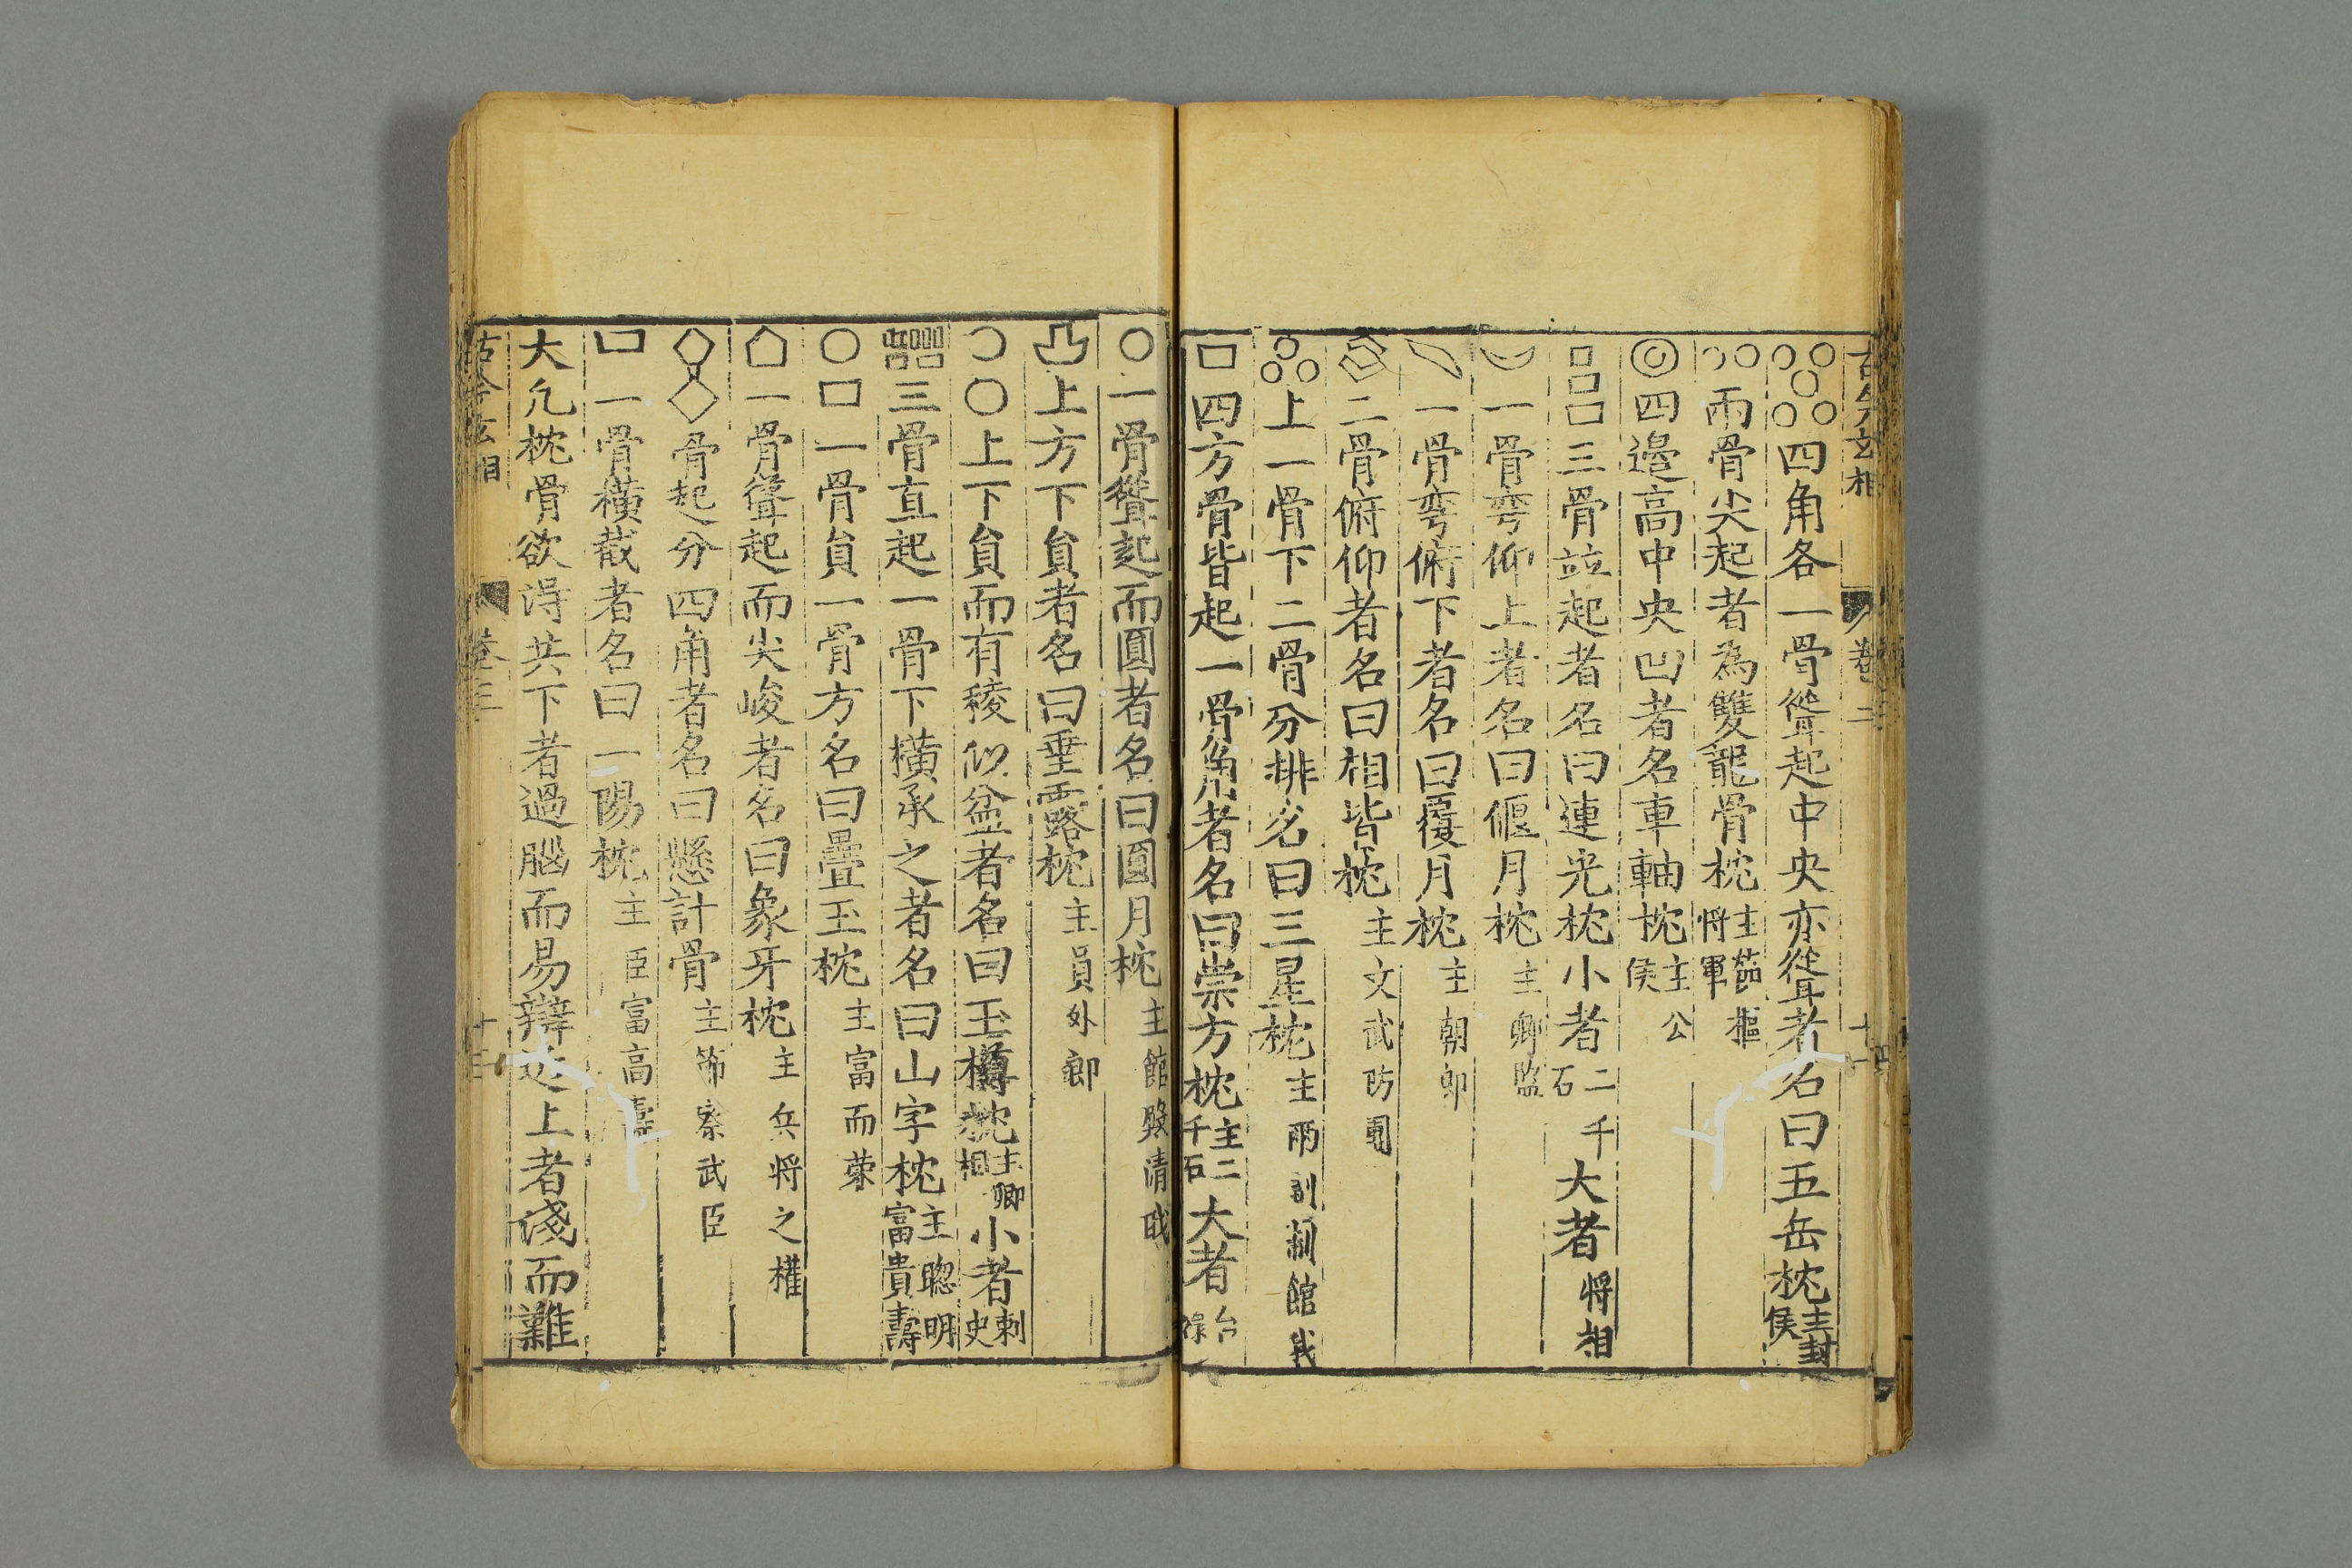 四角各一骨聳起中央亦聳者名曰五岳枕主封侯
兩骨尖起者為雙龍骨枕主節樞將軍
四邉高中央凹者名車軸枕主公侯
三骨竝起者名曰連光枕小者二千石大者將相
一骨弯仰上者名曰偃月枕主卿監
一骨弯俯下者名曰覆月枕主朝郎
二骨俯仰者名曰相皆枕主文武防
上一骨下二骨分排名曰三星枕主兩制館
四方骨皆起一骨角者名曰崇方枕主二千石大者台
一骨聳起而圓者名曰圓月枕主館殿清
凸上方下貟者名曰垂露枕主員外郷
上下貟而有稜似盆者名曰玉樽枕主卿相小者刺史
三骨直起一骨下横承之者名曰山字枕主聦明富貴壽
一骨貟一骨方名曰疊玉枕主富而荣
一骨聳起而尖峻者名曰象牙枕主兵將之權
骨起分四角者名曰懸計骨主節察武臣
一骨横截者名曰一陽枕主臣富高壽
大凢枕骨欲得共下者過腦而易辯近上者淺而難
古今玄相 卷二